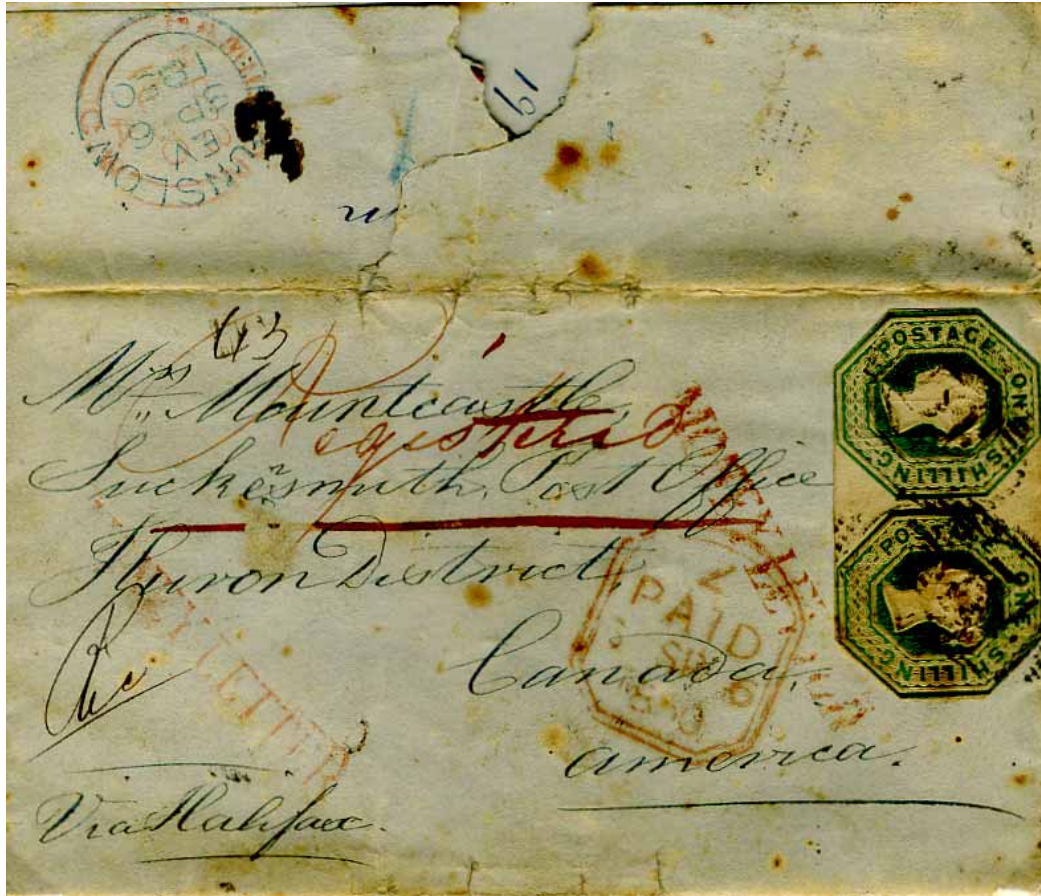 UNSLOW
61
Mrs Mountcastle,
Registered
Suckersmith, Post Office
Huron District,
Canada,
America.
Via Halifax.
MONEY LETTER
MONEY LETTER
PAID
POSTAGE
ONE SHILLING
POSTAGE
ONE SHILLING